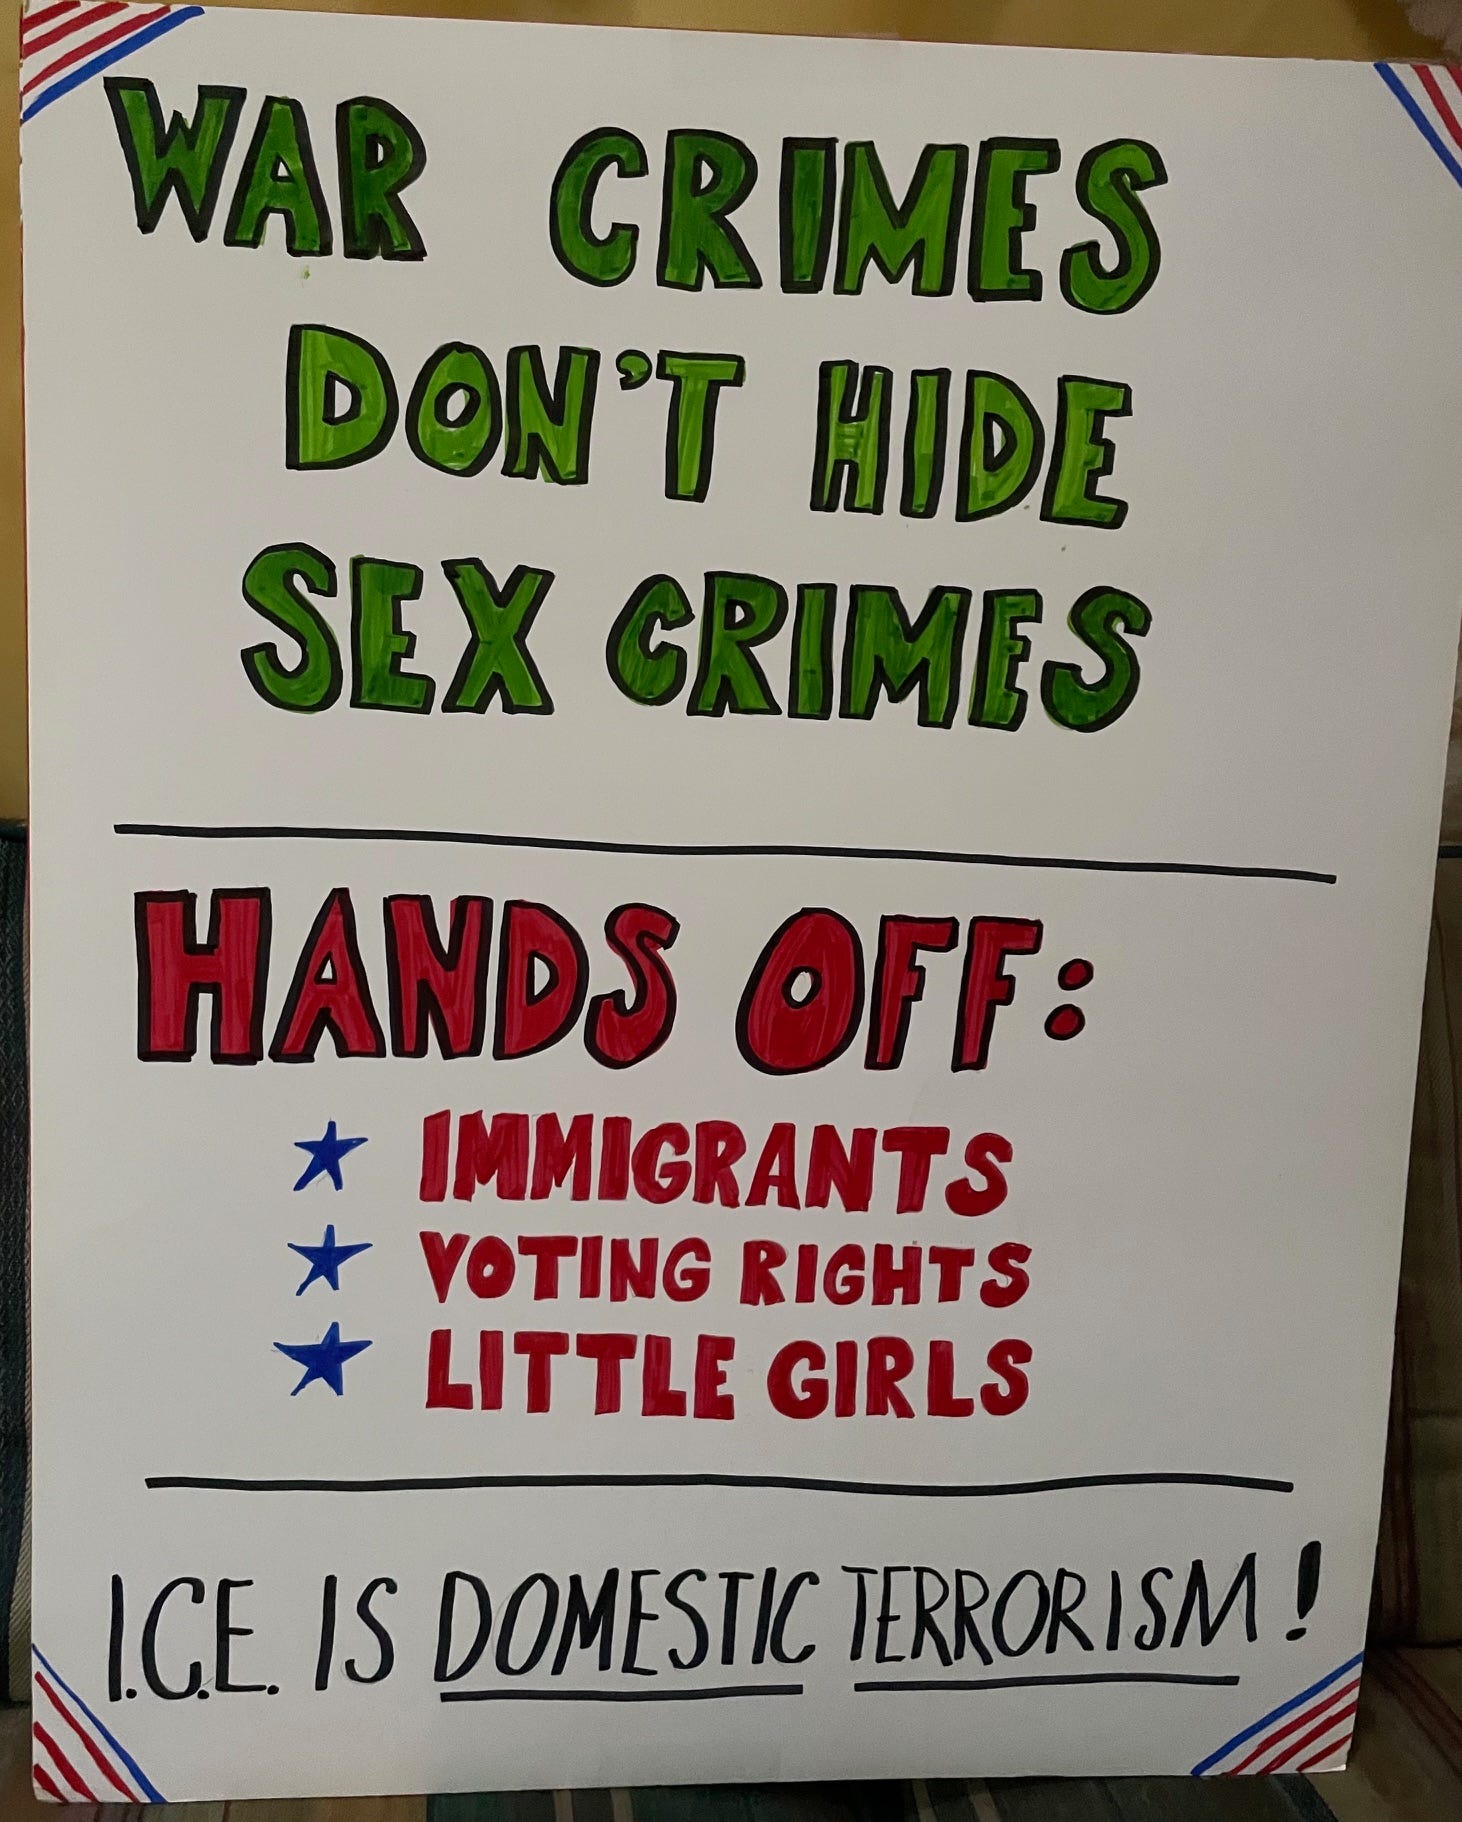 WAR CRIMES
DON'T HIDE
SEX CRIMES
HANDS OFF:
IMMIGRANTS
VOTING RIGHTS
LITTLE GIRLS
I.C.E. IS DOMESTIC TERRORISM!